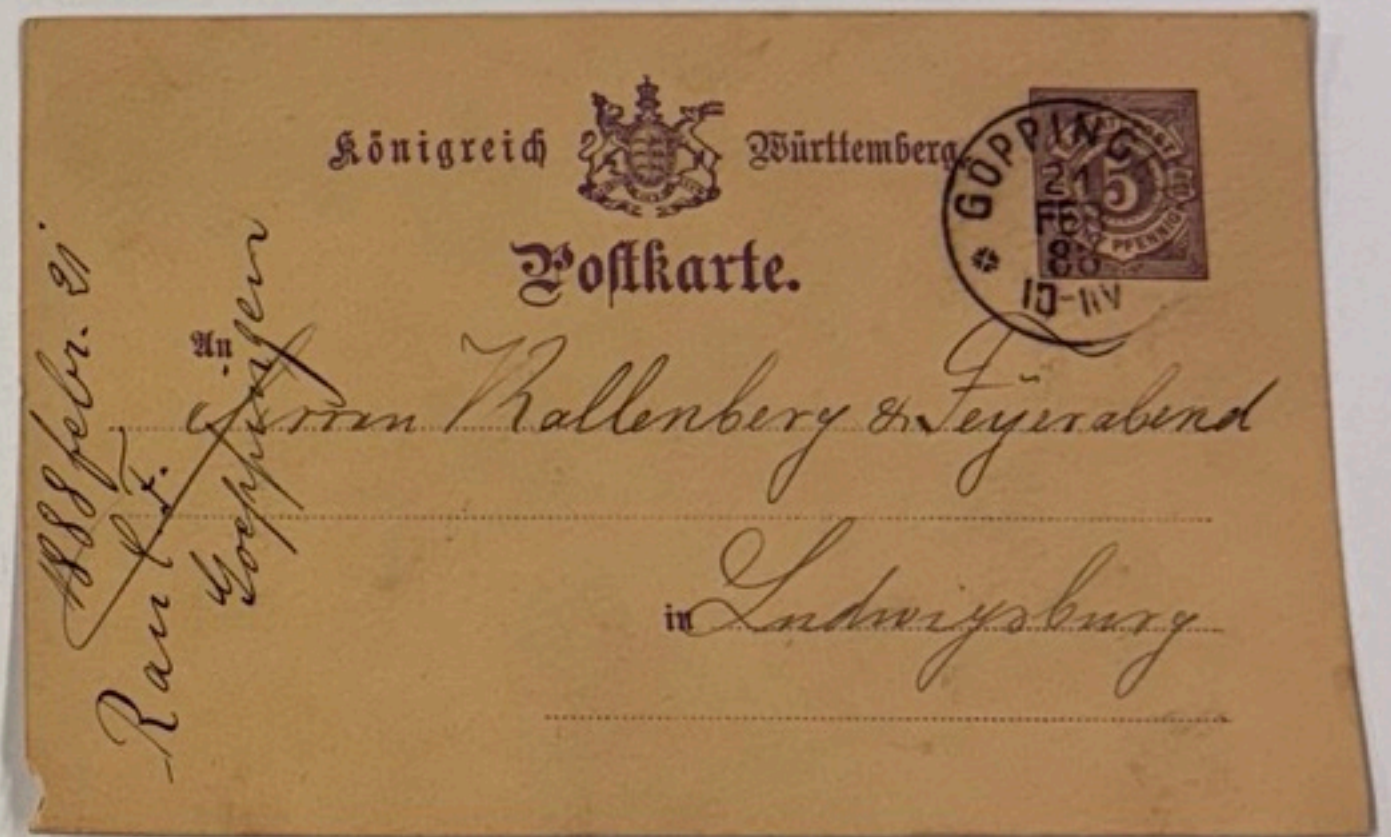 Königreich Württemberg
Postkarte.
GÖPPING
21
FEB
88
10-11V
5
PFENNIG
An
Herren Kallenberg & Feyerabend
in Ludwigsburg
1888 febr. 21
Rau
Goeppingen